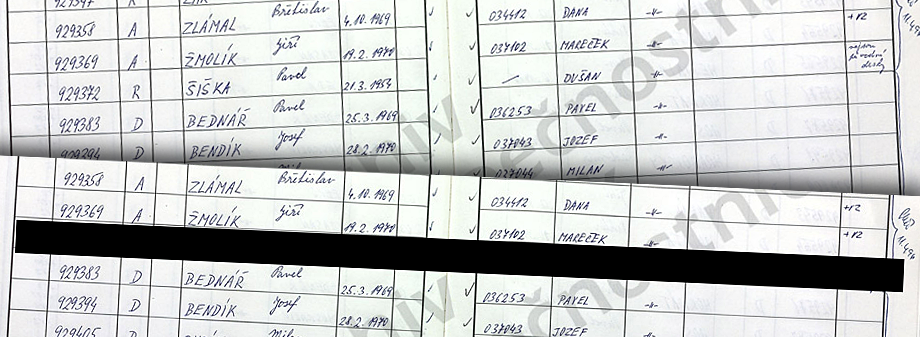 929358 A ZLÁMAL Břetislav 4.10.1969 034412 DANA -"- +12
929369 A ŽMOLÍK Jiří 19.2.1970 037102 MAREČEK -"-
929372 R ŠIŠKA Pavel 21.3.1954 DUŠAN -"-
929383 D BEDNÁŘ Pavel 25.3.1969 036253 PAVEL -"-
929394 D BENDÍK Josef 28.2.1970 037043 JOZEF -"-
037044 MILAN -"-
929358 A ZLÁMAL Břetislav 4.10.1969 034412 DANA -"- +12
929369 A ŽMOLÍK Jiří 19.2.1970 037102 MAREČEK -"- +12
929383 D BEDNÁŘ Pavel 25.3.1969 036253 PAVEL -"-
929394 D BENDÍK Josef 28.2.1970 037043 JOZEF -"-
929405 D